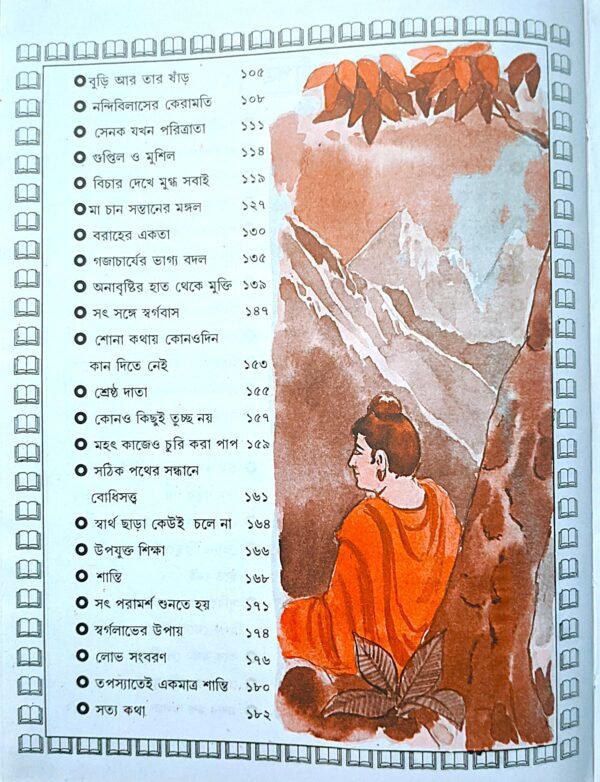 বুড়ি আর তার ষাঁড় ১০৫
নন্দিবিলাসের কেরামতি ১০৮
সেনক যখন পরিত্রাতা ১১১
গুপ্তিল ও মুশিল ১১৪
বিচার দেখে মুগ্ধ সবাই ১১৯
মা চান সন্তানের মঙ্গল ১২৭
বরাহের একতা ১৩০
গজাচার্যের ভাগ্য বদল ১৩৫
অনাবৃষ্টির হাত থেকে মুক্তি ১৩৯
সৎ সঙ্গে স্বর্গবাস ১৪৭
শোনা কথায় কোনওদিন
কান দিতে নেই ১৫৩
শ্রেষ্ঠ দাতা ১৫৫
কোনও কিছুই তুচ্ছ নয় ১৫৭
মহৎ কাজেও চুরি করা পাপ ১৫৯
সঠিক পথের সন্ধানে
বোধিসত্ত্ব ১৬১
স্বার্থ ছাড়া কেউই চলে না ১৬৪
উপযুক্ত শিক্ষা ১৬৬
শাস্তি ১৬৮
সৎ পরামর্শ শুনতে হয় ১৭১
স্বর্গলাভের উপায় ১৭৪
লোভ সংবরণ ১৭৬
তপস্যাতেই একমাত্র শান্তি ১৮০
সত্য কথা ১৮২